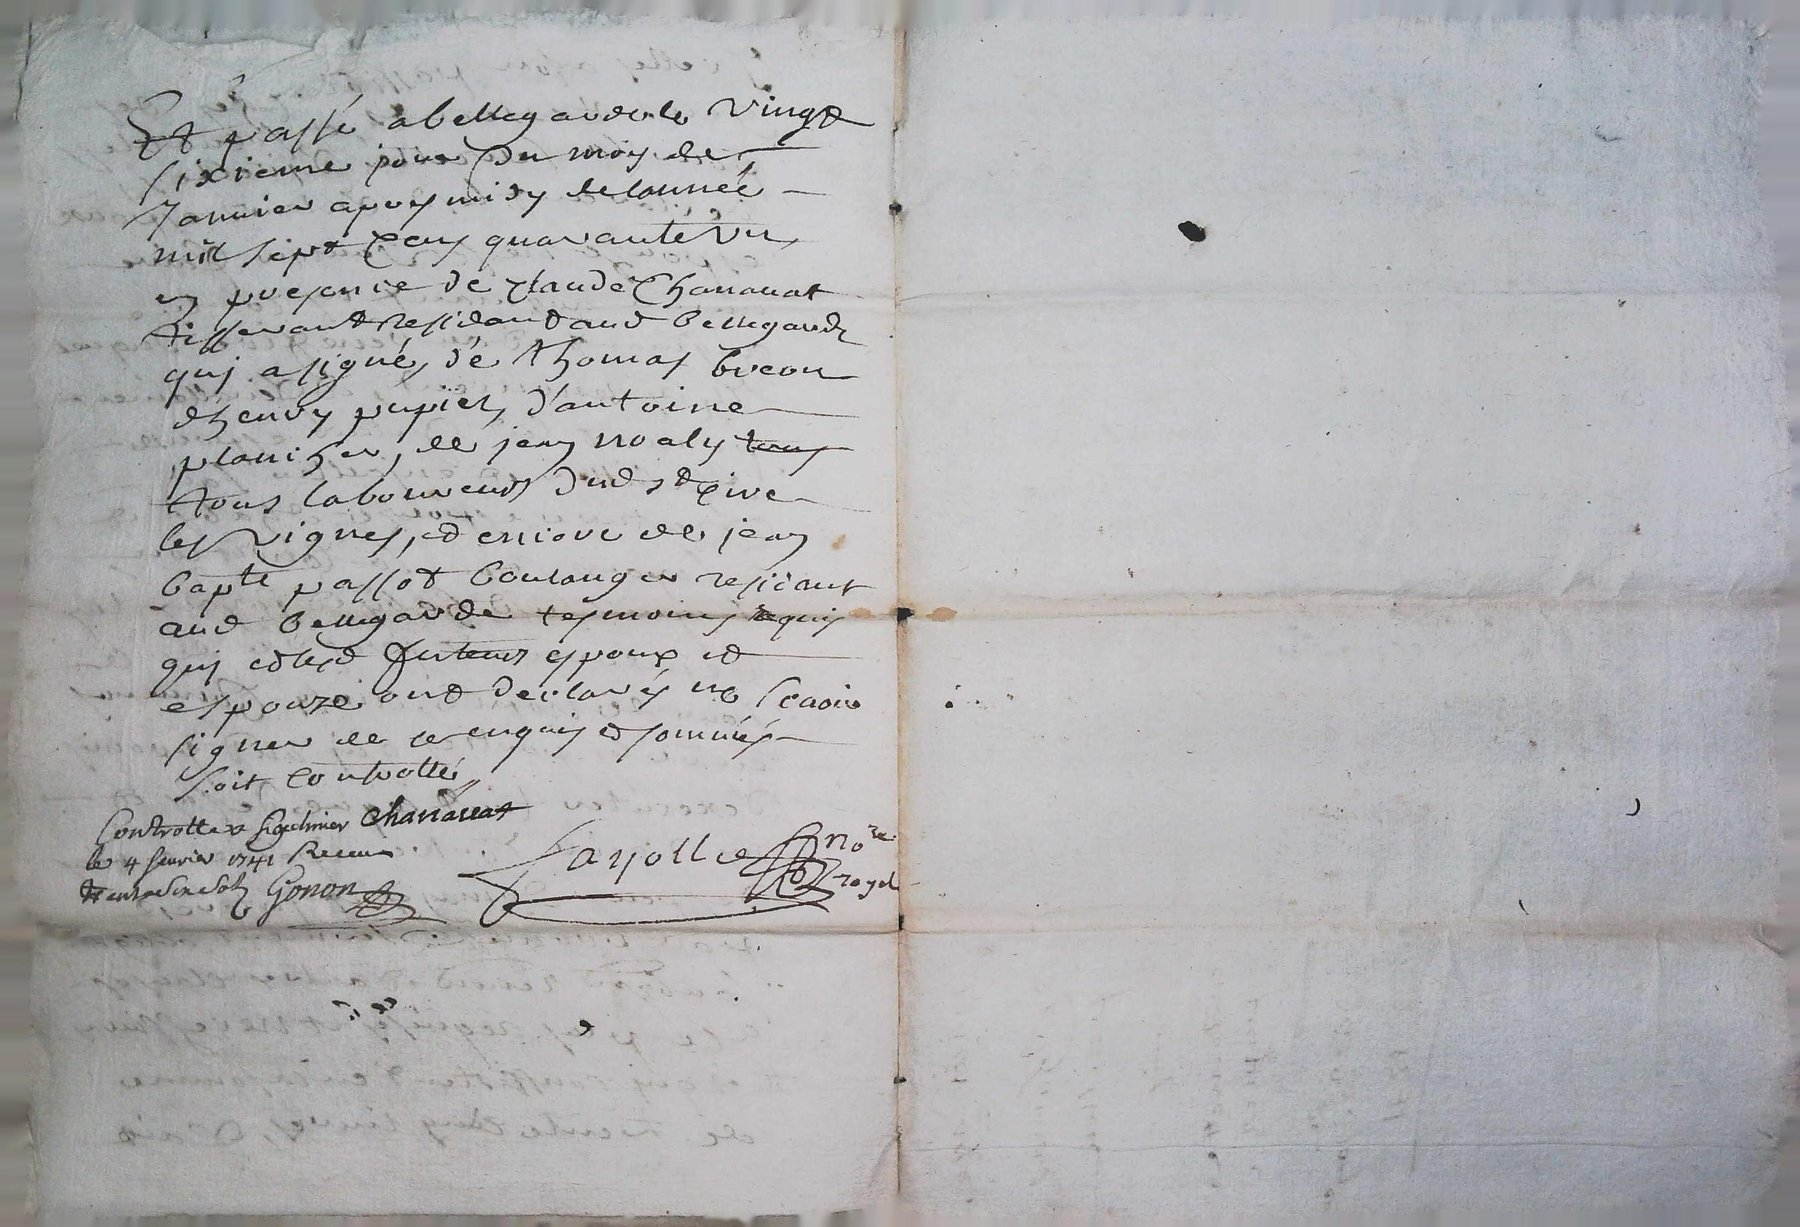 Et passé a bellegarde le vingt
sixieme jour du mois de
Janvier apres midy de lannée
mil sept cens quarante un
en presence de Claude Chanavat
tisserant residant aud bellegarde
qui a signé, de thomas breon
d'henry pupier, d'antoine
plancher, de jean noaly tous
tous laboureurs dud st Cire
les vignes, et encore de jean
bapte passot boulanger residant
aud bellegarde tesmoins requis
qui et lesd futeurs espoux et
espouze ont declarés ne scavoir
signer de ce enquis et sommés
soit controllé
Chanavat
Controllé a
le 4 fevrier 1741 Receu
Gonon
Fayolle no.re royal